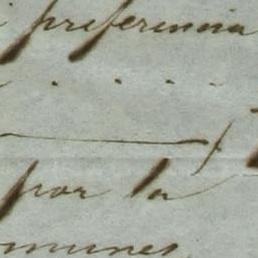 preferencia
por la
munes,